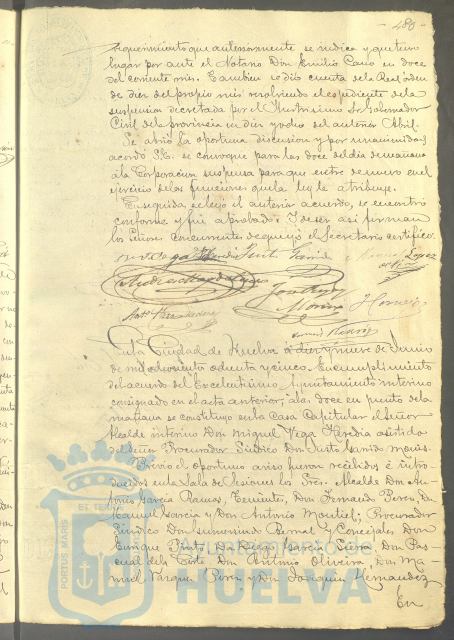 - 480 -
requerimiento que anteriormente se indica y que tuvo
lugar por ante el Notario Don Emilio Cano en doce
del corriente mes. Tambien se dió cuenta de la Real orden
de diez del propio mes resolviendo el espediente de la
suspension decretada por el Ilustrisimo Sr. Gobernador
Civil de la provincia en diez y ocho del anterior Abril.
Se abrió la oportuna discusion y por unanimidad
acordó S.E. se convoque para las doce del dia de mañana
á la Corporacion suspensa para que entre de nuevo en el
ejercicio de las funciones que la ley le atribuye.
En seguida, se leyó el anterior acuerdo, se encontró
conforme y fué aprobado. Y de ser asi firman
los Señores concurrentes de que yo el Secretario certifico.
En la Ciudad de Huelva á diez y nueve de Junio
de mil ochocientos ochenta y cinco. En cumplimiento
del acuerdo del Excelentisimo Ayuntamiento interino
consignado en el acta anterior; á las doce en punto de la
mañana se constituyó en la Casa Capitular el Señor
Alcalde interino Don Miguel Vega Heredia asistido
del Señor Procurador Sindico Don Justo Garrido Morés.
Previo el oportuno aviso fueron recibidos é intro-
ducidos en la Sala de Sesiones los Sres. Alcalde Don An-
tonio Garcia Ramos, Tenientes, Don Fernando Perez, Don
Manuel Garcia y Don Antonio Montiel; Procurador
Sindico Don Sumersindo Bernal y Concejales Don
Enrique Diaz, Don Diego Garcia, Don Pas-
cual del Don Antonio Oliveira, Don Ma-
nuel Vazquez Perez y Don Joaquin Hernandez
En
PORTUS MARIS
ET TERRE
Ayuntamiento de
HUELVA